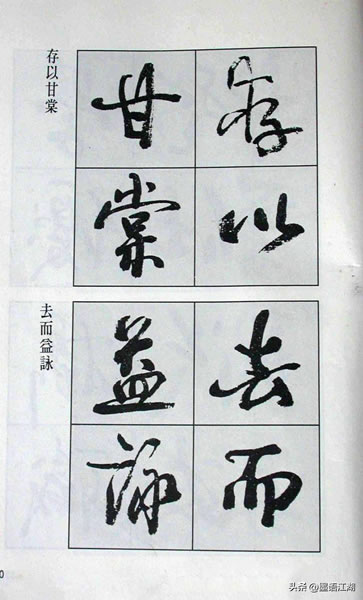 存以
甘棠
存以甘棠
去而
益詠
去而益詠
0
头条 @语江湖